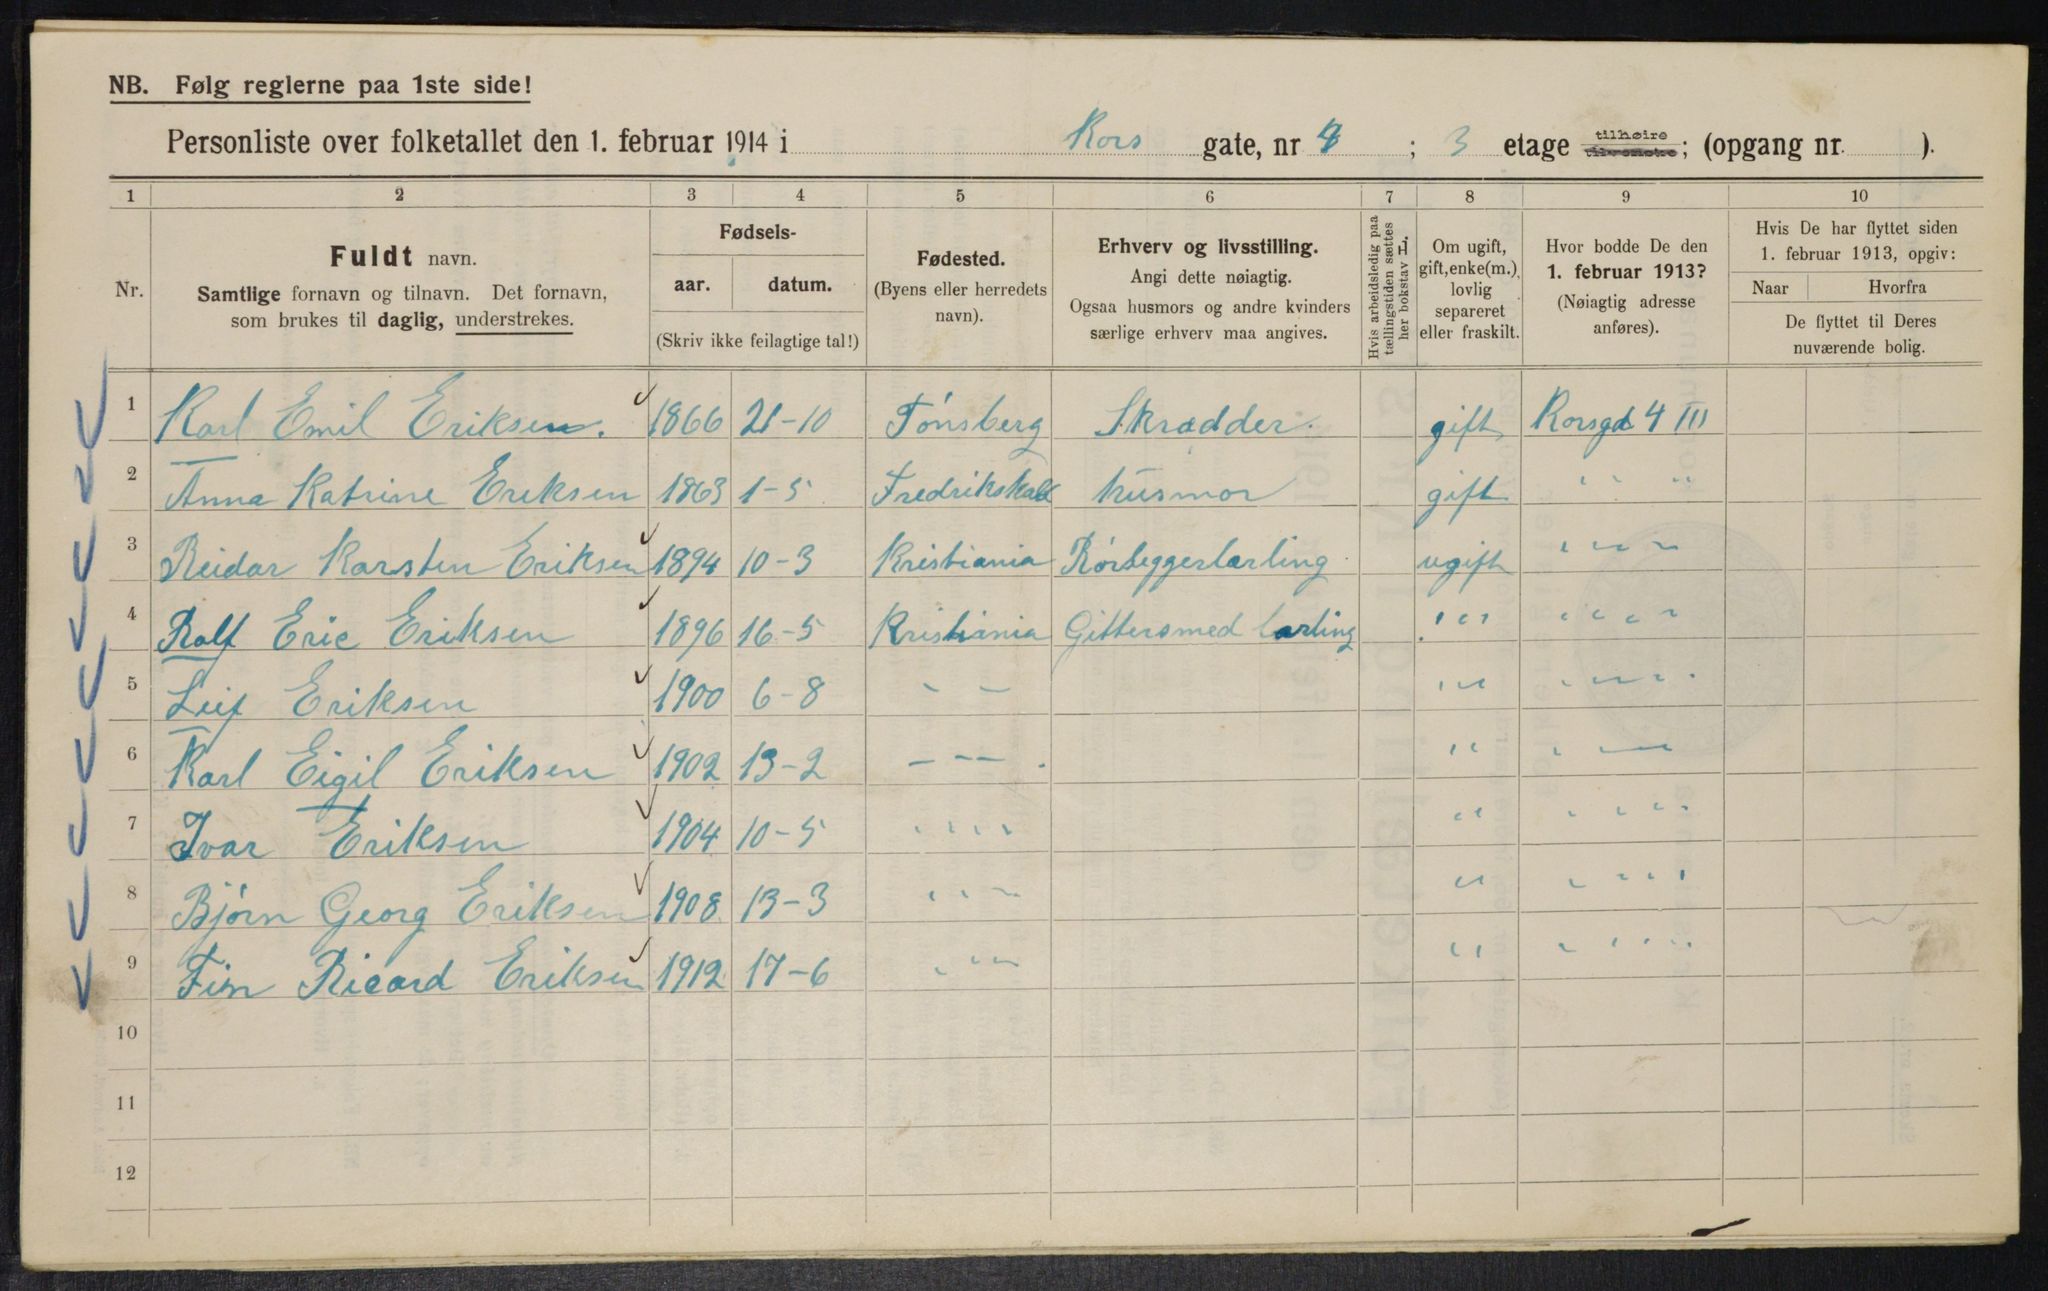 NB. Følg reglerne paa 1ste side!
Personliste over folketallet den 1. februar 1914 i Kors gate, nr ; 3 etage tilhøire ; (opgang nr. ).
1 2 3 4 5 6 7 8 9 10
Nr.
Fuldt navn.
Samtlige fornavn og tilnavn. Det fornavn,
som brukes til daglig, understrekes.
Fødsels-
aar. datum.
(Skriv ikke feilagtige tal!)
Fødested.
(Byens eller herredets
navn).
Erhverv og livsstilling.
Angi dette nøiagtig.
Ogsaa husmors og andre kvinders
særlige erhverv maa angives.
Hvis arbeidsledig paa
tællingstiden sættes
her bokstav L.
Om ugift,
gift, enke(m.),
lovlig
separeret
eller fraskilt.
Hvor bodde De den
1. februar 1913?
(Nøiagtig adresse
anføres).
Hvis De har flyttet siden
1. februar 1913, opgiv:
Naar Hvorfra
De flyttet til Deres
nuværende bolig.
1 Karl Emil Eriksen. 1866 21-10 Tønsberg Skrædder. gift Korsgd 4 III
2 Anna Katrine Eriksen 1863 1-5 Fredrikshald husmor gift " " "
3 Reidar Karsten Eriksen 1894 10-3 Kristiania Rørleggerlærling ugift " " " "
4 Rolf Eric Eriksen 1896 16-5 Kristiania Gittersmed lærling " " " " " " "
5 Leif Eriksen 1900 6-8 " " " " " " " " "
6 Karl Eigil Eriksen 1902 13-2 " " " " " " "
7 Ivar Eriksen 1904 10-5 " " " " " " " " " "
8 Bjørn Georg Eriksen 1908 13-3 " " " " " " " " "
9 Finn Ricard Eriksen 1912 17-6 " " " " " " " " " "
10
11
12